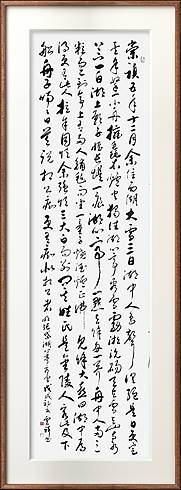 崇禎五年十二月余住西湖大雪三日湖中人鳥聲俱絕是日更定
矣余拏一小舟擁毳衣爐火獨往湖心亭看雪霧凇沆碭天與雲與山與水
上下一白湖上影子惟長堤一痕湖心亭一點與余舟一芥舟中人兩三
粒而已到亭上有兩人鋪氈對坐一童子燒酒爐正沸見余大喜曰湖中焉
得更有此人拉余同飲余強飲三大白而別問其姓氏是金陵人客此及下
船舟子喃喃曰莫說相公癡更有癡似相公者 明張岱湖心亭看雪 戊戌